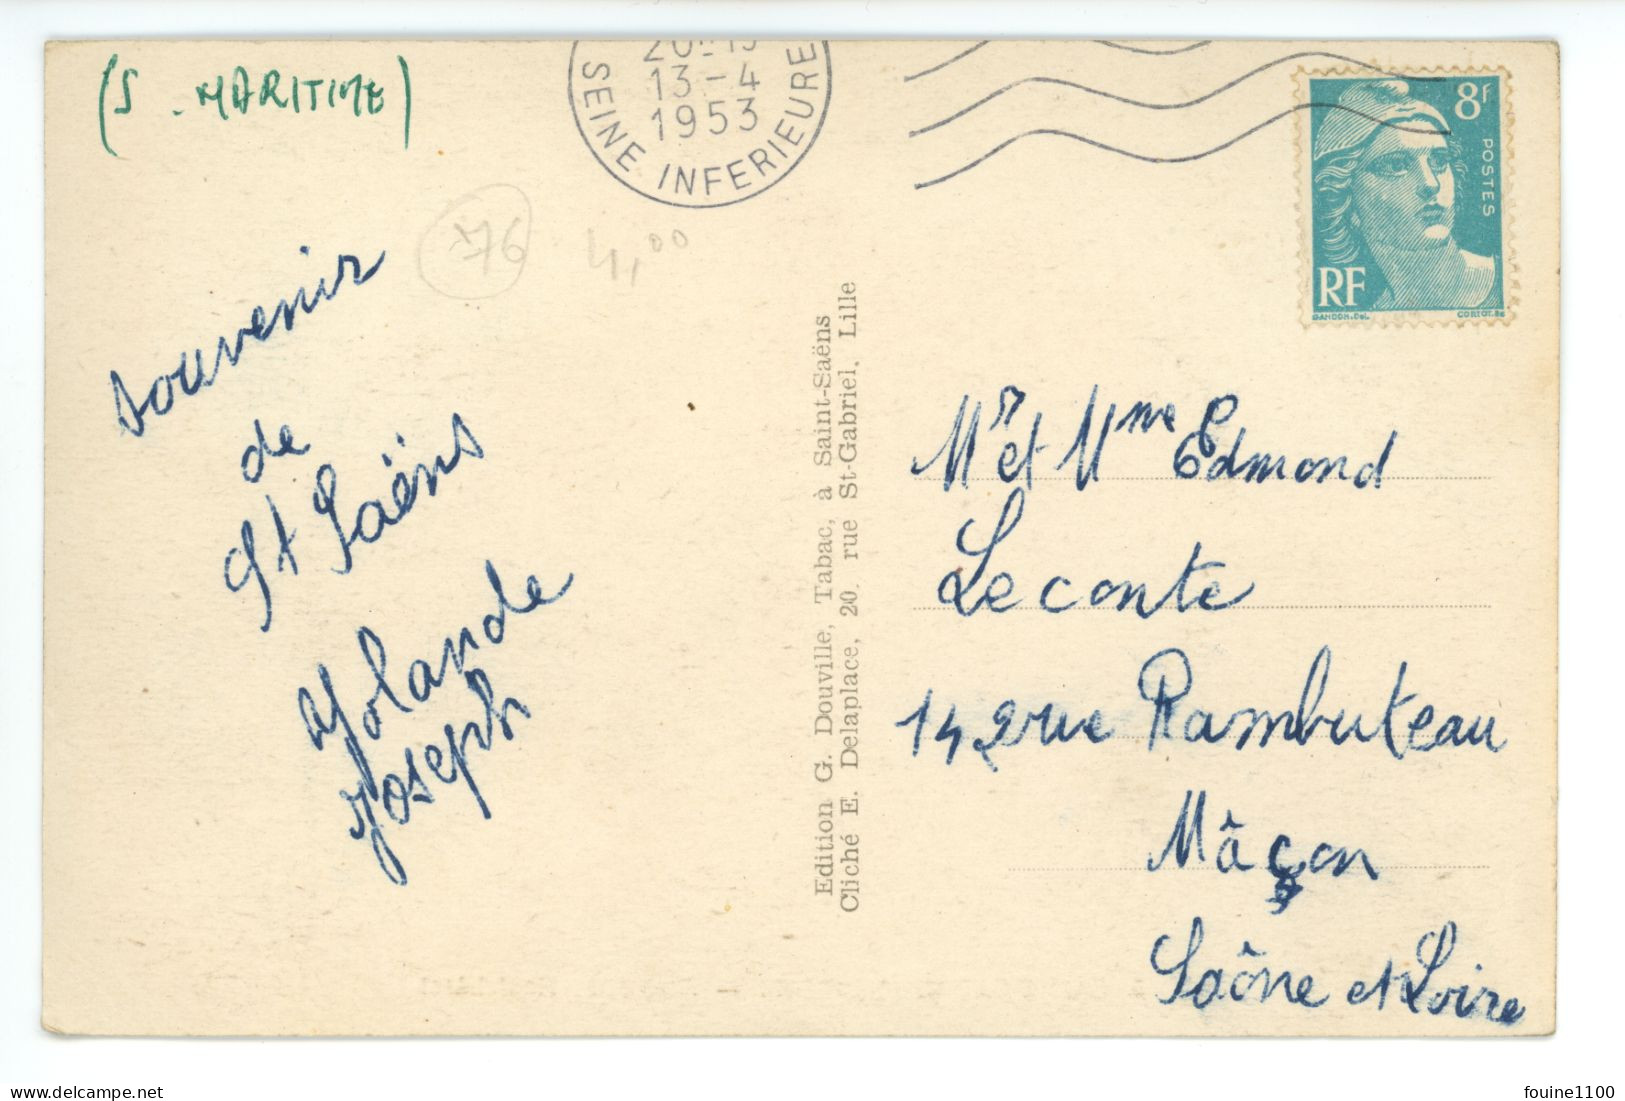 (S - MARITIME)
13-4
1953
SEINE INFERIEURE
8f
POSTES
RF
GANDON.Del.
CORTOT.Sc
76
4,00
souvenir
de
St Saëns
Yolande
Joseph
Edition G. Douville, Tabac, à Saint-Saëns
Cliché E. Delaplace, 20. rue St-Gabriel, Lille
Mr et Mme Edmond
Leconte
142 rue Rambuteau
Mâçon
Saône et Loire
fouine1100
delcampe.net